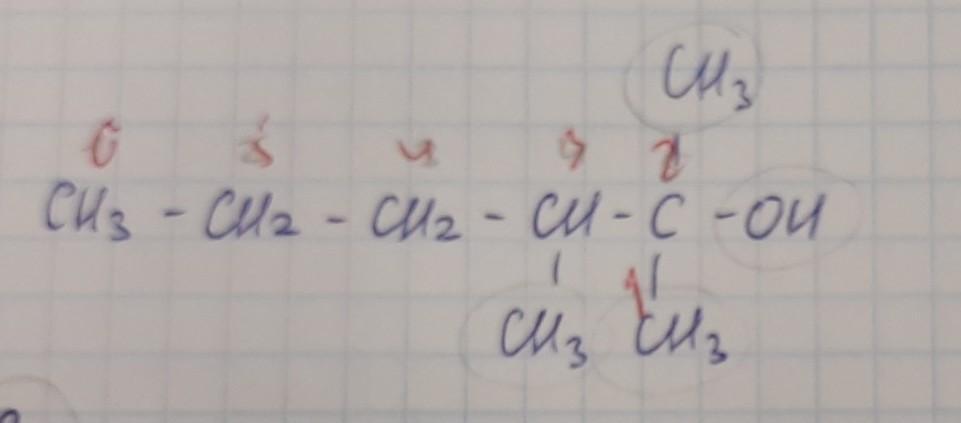 CH3
6 5 4 3 2
CH3 - CH2 - CH2 - CH - C - OH
| 1 |
CH3 CH3